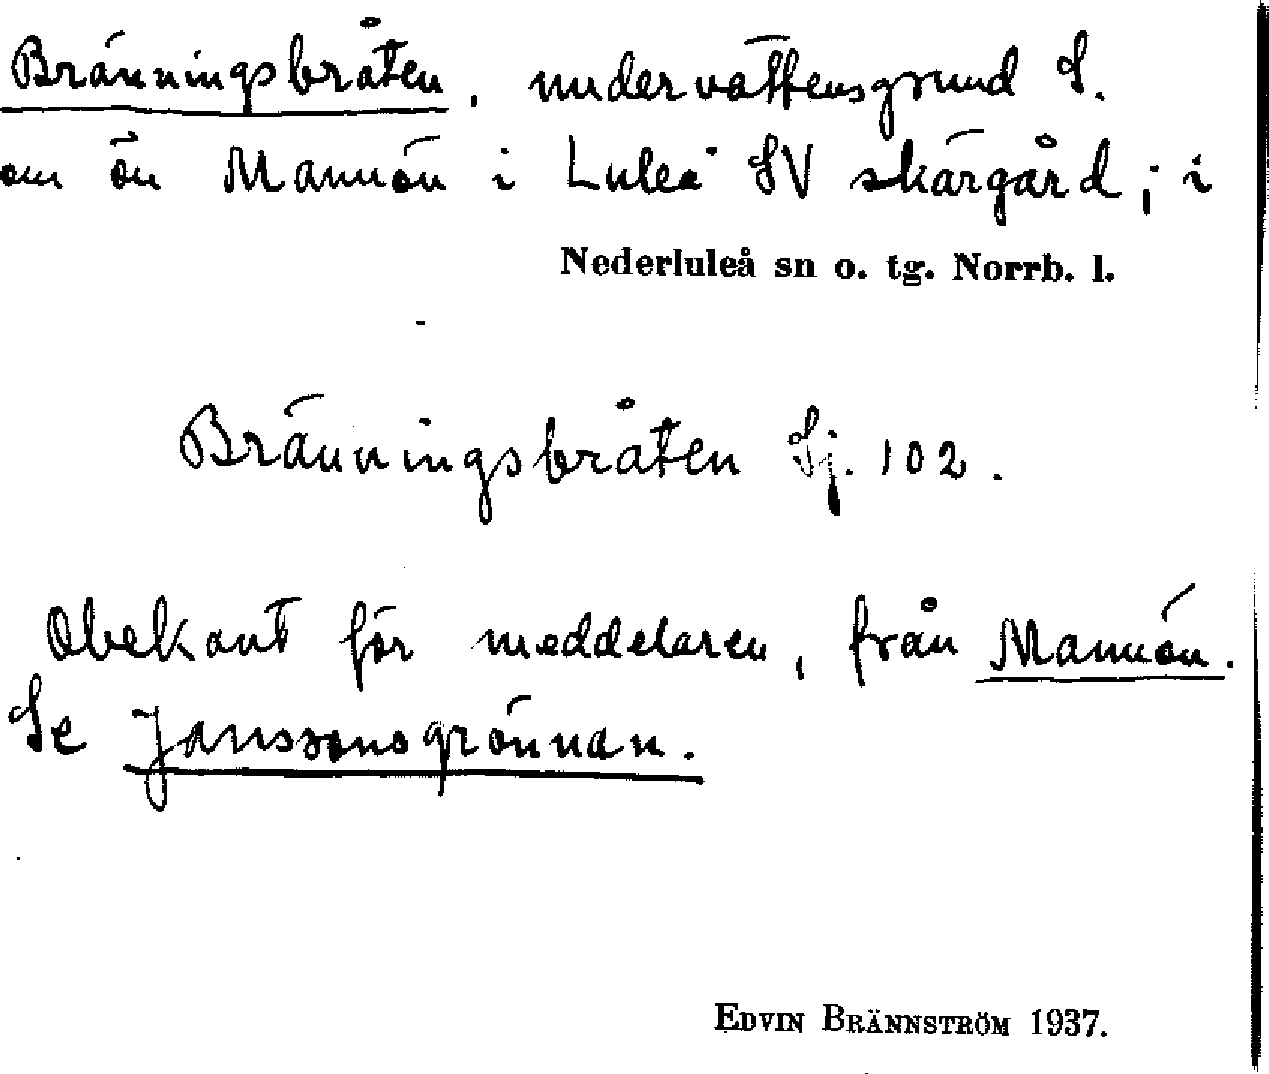 Bränningsbråten, undervattensgrund S.
om ön Mannön i Luleå SV skärgård; i
Nederluleå sn o. tg. Norrb. l.
Bränningsbråten Sj. 102.
Obekant för meddelaren, från Mannön.
Se Janssonsgrönnan.
EDVIN BRÄNNSTRÖM 1937.